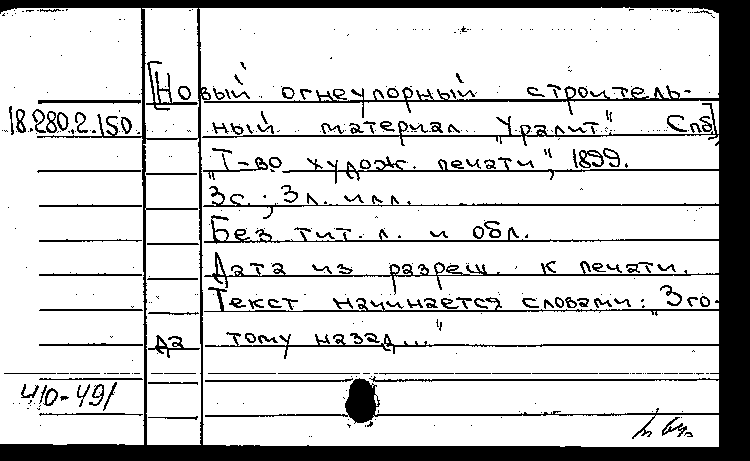 [Новый огнеупорный строитель-
18.280.2.150. ный материал „Уралит". Спб]
„Т-во худож. печати", 1899.
3 с.; 3 л. илл.
Без тит. л. и обл.
Дата из разреш. к печати.
Текст начинается словами: „3 го-
да тому назад..."
410-491